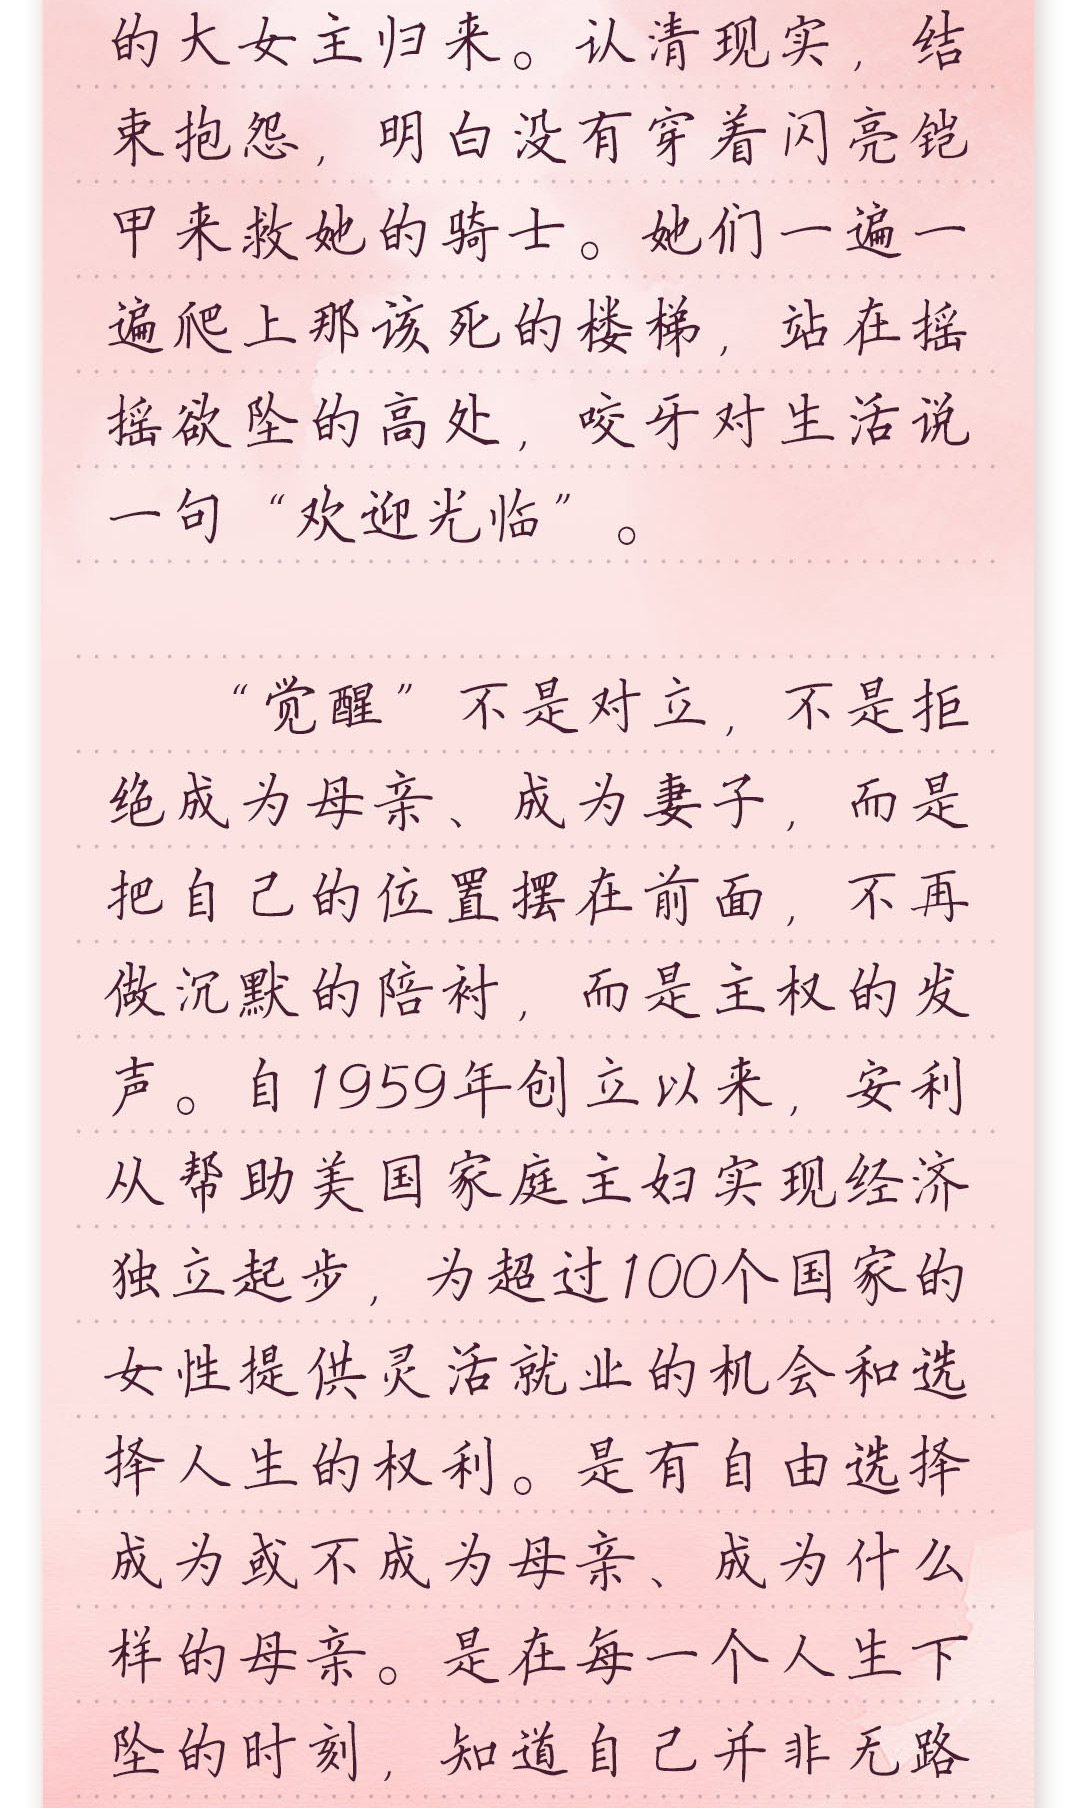 的大女主归来。认清现实，结
束抱怨，明白没有穿着闪亮铠
甲来救她的骑士。她们一遍一
遍爬上那该死的楼梯，站在摇
摇欲坠的高处，咬牙对生活说
一句“欢迎光临”。
“觉醒”不是对立，不是拒
绝成为母亲、成为妻子，而是
把自己的位置摆在前面，不再
做沉默的陪衬，而是主权的发
声。自1959年创立以来，安利
从帮助美国家庭主妇实现经济
独立起步，为超过100个国家的
女性提供灵活就业的机会和选
择人生的权利。是有自由选择
成为或不成为母亲、成为什么
样的母亲。是在每一个人生下
坠的时刻，知道自己并非无路